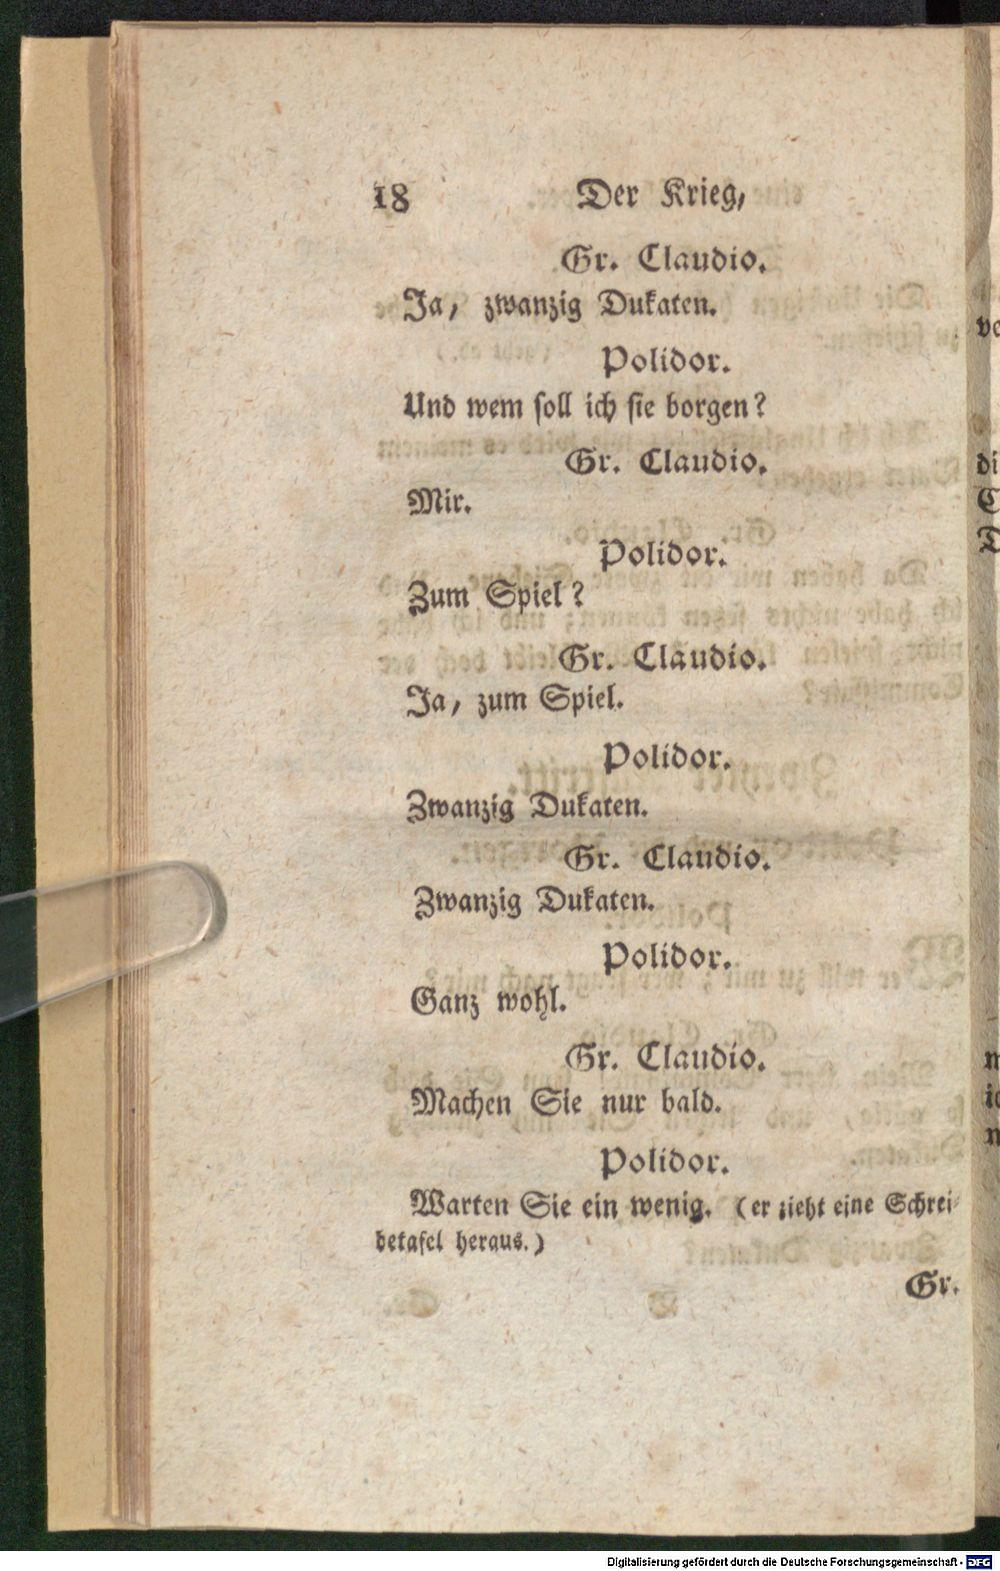 18 Der Krieg,
Gr. Claudio.
Ja, zwanzig Dukaten.
Polidor.
Und wem soll ich sie borgen?
Gr. Claudio.
Mir.
Polidor.
Zum Spiel?
Gr. Claudio.
Ja, zum Spiel.
Polidor.
Zwanzig Dukaten.
Gr. Claudio.
Zwanzig Dukaten.
Polidor.
Ganz wohl.
Gr. Claudio.
Machen Sie nur bald.
Polidor.
Warten Sie ein wenig. (er zieht eine Schrei-
betafel heraus.)
Gr.
Digitalisierung gefördert durch die Deutsche Forschungsgemeinschaft - DFG